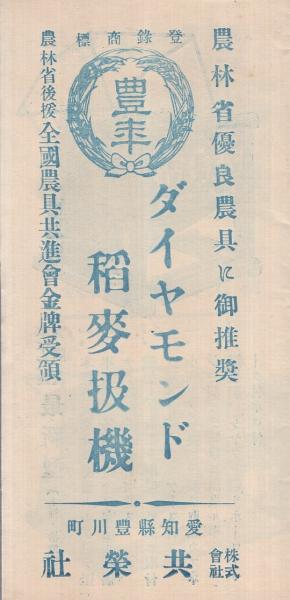 農林省優良農具に御推奨
標商錄登
豊年
ダイヤモンド
稻麥扱機
農林省後援全國農具共進會金牌受領
町川豐縣知愛
社榮共 株式會社